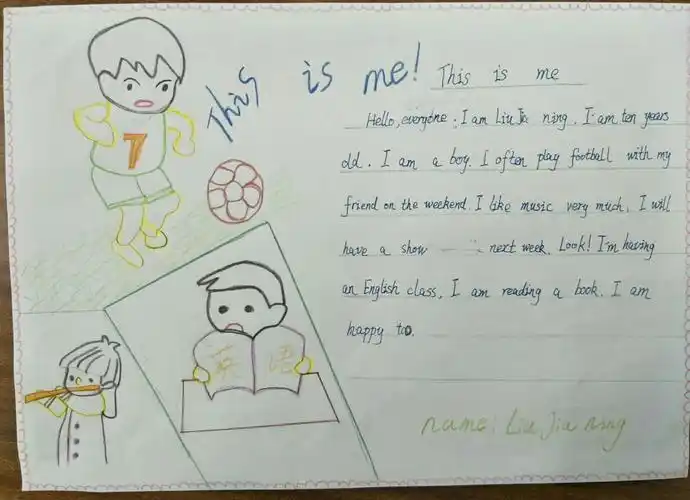 This is me!
This is me
Hello, everyone. I am Liu Jia ning. I am ten years
old. I am a boy. I often play football with my
friend on the weekend. I like music very much. I will
have a show next week. Look! I'm having
an English class. I am reading a book. I am
happy too.
7
英语
name: Liu Jia ning